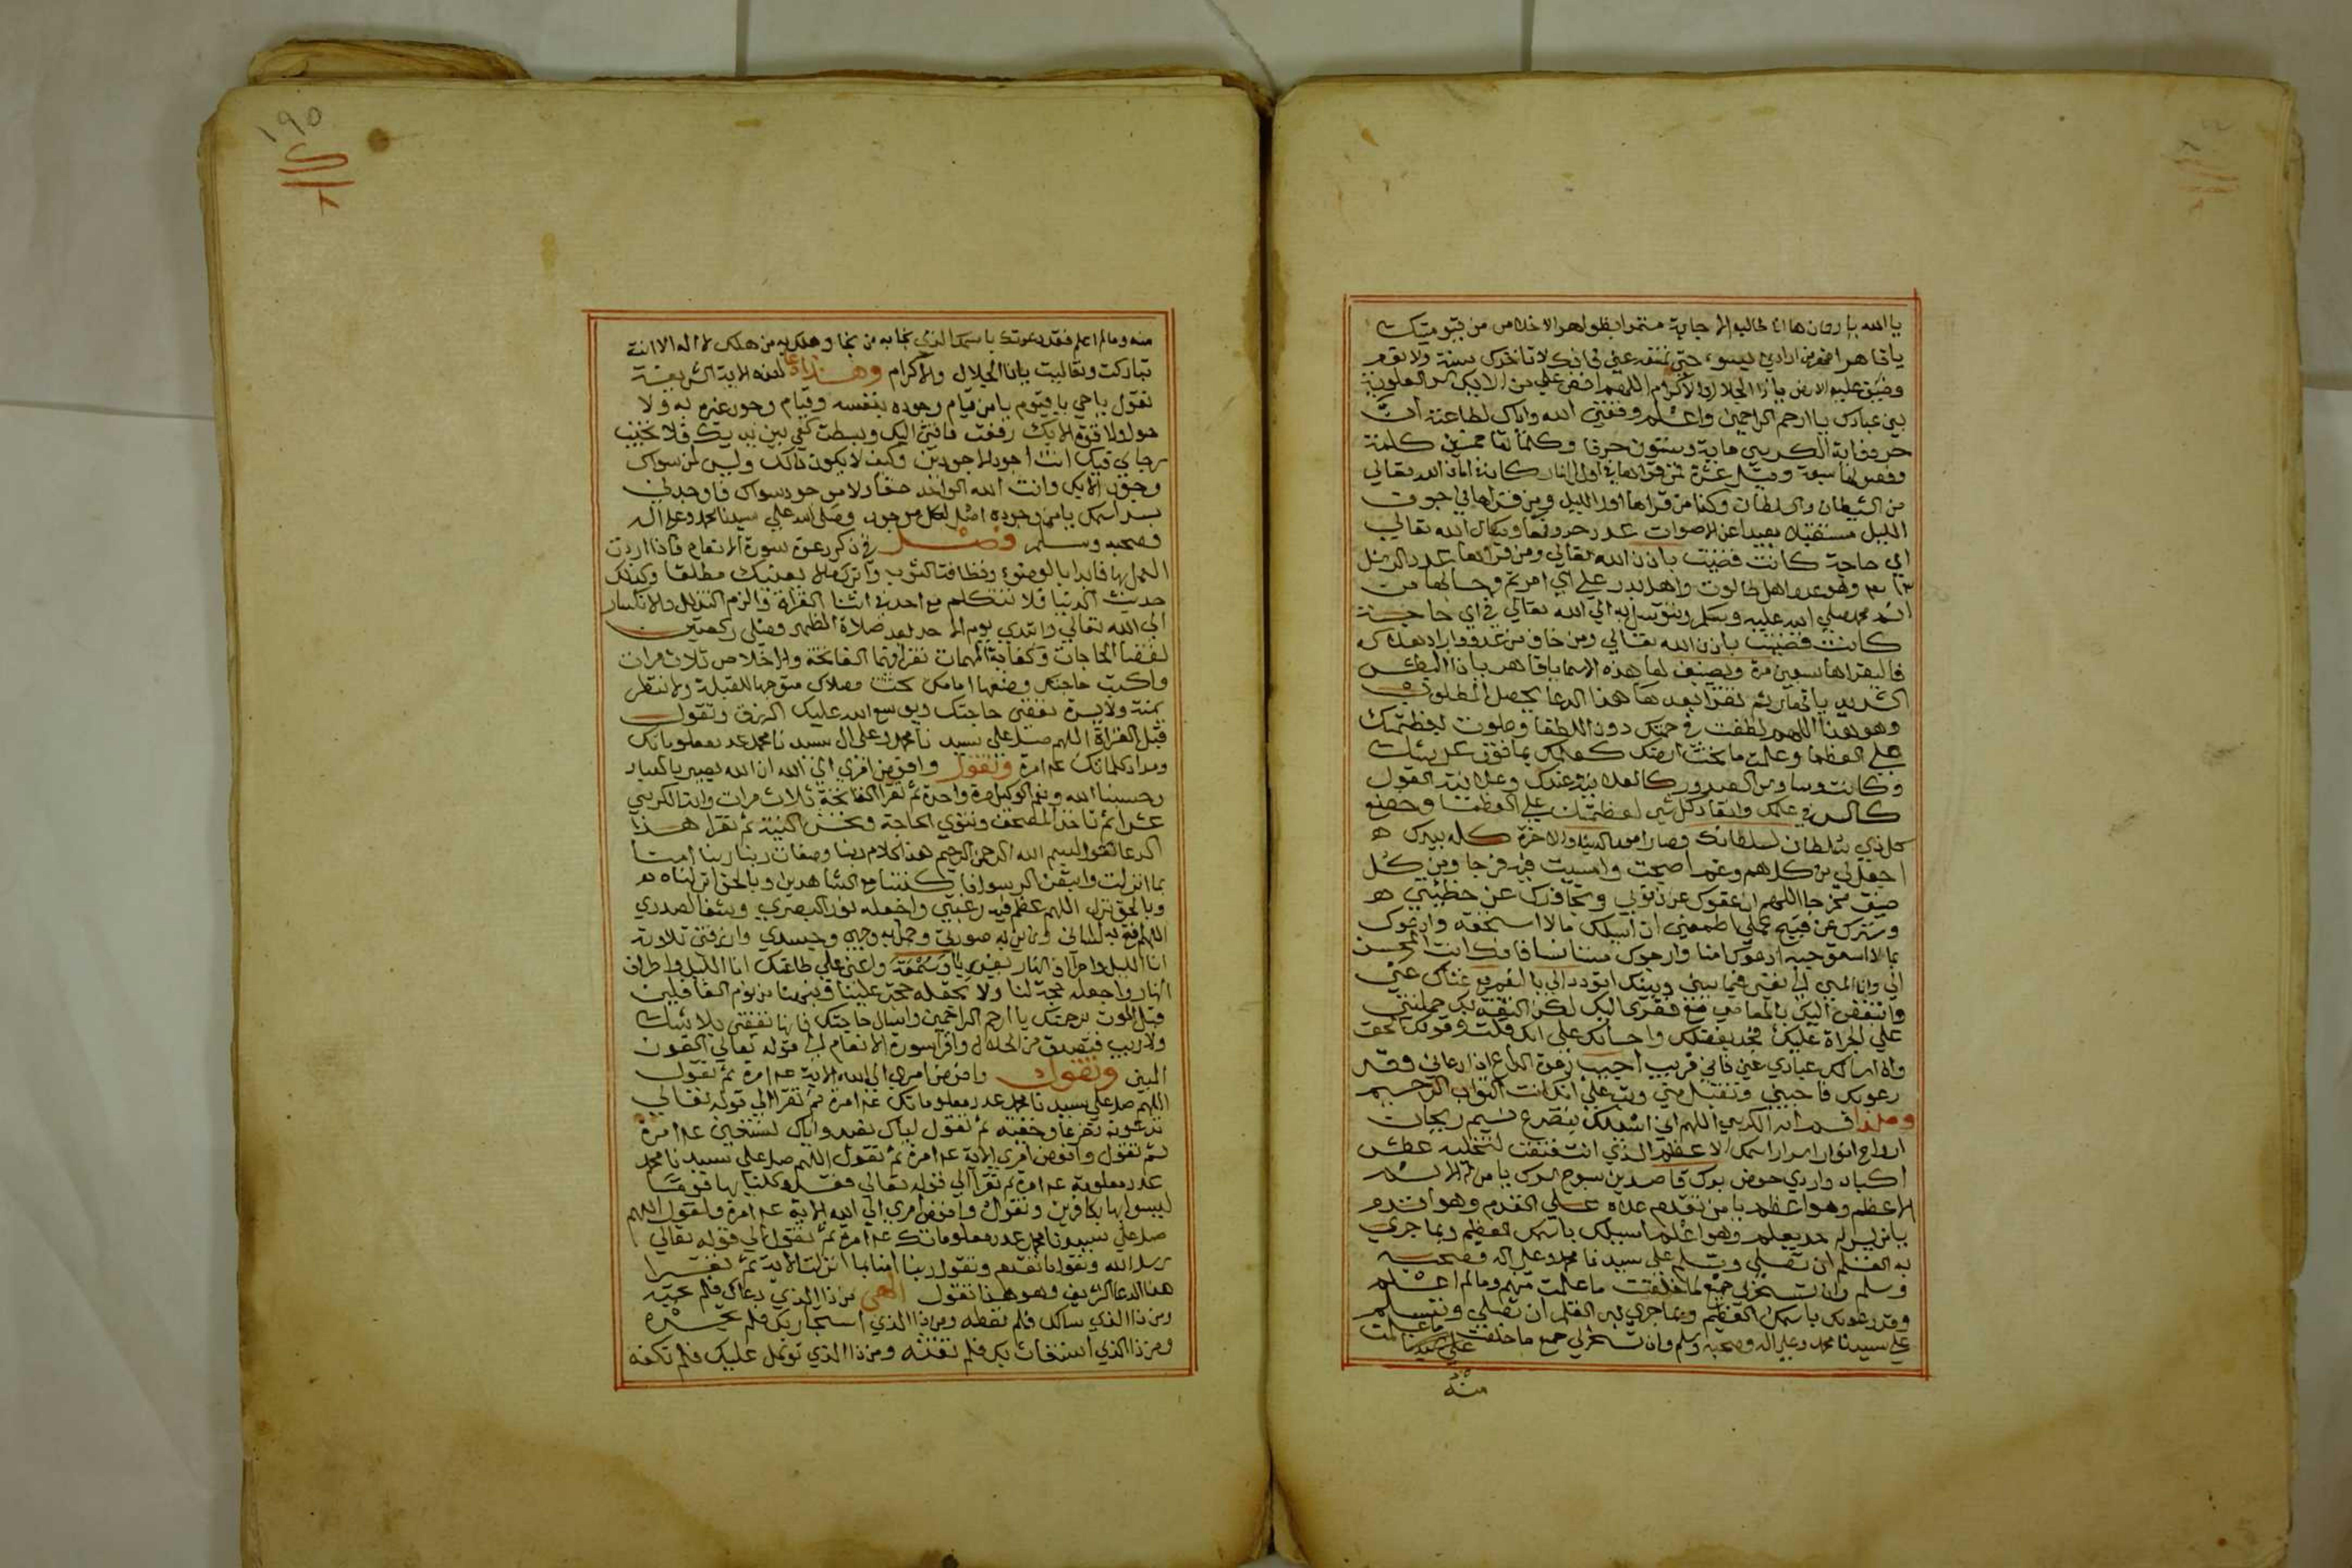 يا الله يا رحمان ها انا طالبا الاجابة منتمرا بظواهر الاخلاص من قيوميتك
يا قاهر اقهر من ارادني بسوء حتى تنقذه عني فانك لا تاخذك سنة ولا نوم
وضيق عليه الارض يا ذا الجلال والاكرام اللهم افض علي من الايك العلوية
بين عبادك يا ارحم الراحمين واعلم وفقني الله واياك لطاعته ان
حروف اية الكرسي ماية وستون حرفا وكلماتها خمسين كلمة
وفصولها سبعة وقيل عشرة فمن قراها في اول النهار كان في امان الله تعالى
من الشيطان والسلطان وكذا من قراها اول الليل ومن قراها في جوف
الليل مستقبلا بعيدا عن الاصوات عدد حروفها وسال الله تعالى
اي حاجة كانت قضيت باذن الله تعالى ومن قراها عدد الرسل
٣١٣ وهو عدد اهل طالوت واهل بدر على اي امر تم وحبا لها من
محمد صلى الله عليه وسلم وتوسل به الى الله تعالى في اي حاجة
كانت قضيت باذن الله تعالى ومن خاف من عدو واراد هلاكه
فاليقراها سبعين مرة ويضيف لها هذه الاسما يا قاهر يا ذا البطش
الشديد ثم تقرا بعدها هذا الدعا يحصل المطلوب
وهو هذا اللهم لطفت في عظمتك دون اللطفا وعلوت بعظمتك
على العظما وعلمت ما تحت ارضك كعلمك بما فوق عرشك
وكانت وساوس الصدور كالعلانية عندك وعلانية القول
كالسر في علمك وانقاد كل شي لعظمتك على العظما وخضع
كل ذي سلطان لسلطانك وصار امر الدنيا والاخرة كله بيدك
اجعل لي من كل هم وغم اصبحت وامسيت فيه فرجا ومن كل
ضيق مخرجا اللهم ان عفوك عن ذنوبي وتجاوزك عن خطيئتي
وسترك عن قبيح عملي اطمعني ان اسالك مالا استحقه وادعوك
بما لا استوجبه ادعوك امنا وارجوك مستانسا فانك انت المحسن
الي وانا المسي الى نفسي فيما بيني وبينك تتودد الي بالنعم مع غناك عني
واتبغض اليك بالمعاصي مع فقري اليك لكن الثقة بك حملتني
على الجراة عليك فجد بفضلك واحسانك علي انك قلت وقولك الحق
واذا سالك عبادي عني فاني قريب اجيب دعوة الداع اذا دعاني وقد
دعوتك فاجبني وتقبل مني وتب علي انك انت التواب الرحيم
وهذا قسم اية الكرسي اللهم اني اسئلك بتضرع نسيم ريحان
ارواح انوار اسرار اسمك الاعظم الذي انت
اكباد واردي حوض برك قاصدين بسوح يا من له الاسم
الاعظم وهو اعظم يا من تقدم علاه على القدم وهو اقدم
يا من ليس له حد يعلم وهو اعلم اسالك باسمك العظيم وبما جرى
به القلم ان تصلي وتسلم على سيدنا محمد وعلى اله وصحبه
وسلم وان تسخر لي جميع ما خلقت ما علمت منهم وما لم اعلم
وقد دعوتك باسمك العظيم وبما جرى به القلم ان تصلي وتسلم
على سيدنا محمد وعلى اله وصحبه وسلم وان تسخر لي جميع ما خلقت ما علمت
منه
١٩٥
منه وما لم اعلم فقد دعوتك باسمك الذي نجا به من نجا وهلك به من هلك لا اله الا انت
تباركت وتعاليت يا ذا الجلال والاكرام وهذا دعا لهذه الاية الشريفة
تقول يا حي يا قيوم يا من قيام وجوده بنفسه وقيام وجود غيره به ولا
حول ولا قوة الا بك رفعت فاقتي اليك وبسطت كفي بين يديك فلا تخيب
رجاي فيك انت اجود الاجودين وكيف لا يكون ذلك وليس لمن سواك
وجود الا بك وانت الله الواحد حقا ولا موجود سواك فاوجدني
بسر اسمك يا من وجوده اصل لكل موجود وصلى الله على سيدنا محمد وعلى اله
وصحبه وسلم فصل في ذكر دعوة سورة الانعام فاذا اردت
العمل بها فابدا بالوضوء ونظافة الثوب واترك مطلقا وكذلك
حديث الدنيا فلا تتكلم مع احد في اثنا القراة والزم التذلل والانكسار
الى الله تعالى وابتدي يوم الاحد بعد صلاة الظهر وصلي ركعتين
لقضا الحاجات وكفاية المهمات تقرا فيهما الفاتحة والاخلاص ثلاث مرات
واكتب حاجتك وضعها امامك تحت مصلاك متوجها للقبلة ولا تنظر
يمنة ولا يسرة تقضى حاجتك ويوسع الله عليك الرزق وتقول
قبل القراة اللهم صل على سيدنا محمد وعلى ال سيدنا محمد عدد معلوماتك
ومداد كلماتك مرة وتقول وافوض امري الى الله ان الله بصير بالعباد
وحسبنا الله ونعم الوكيل مرة واحدة ثم تقرا الفاتحة ثلاث مرات واية الكرسي
عشرا ثم تاخذ المصحف وتنوي الحاجة وتحسن النية ثم تقرا هذا
الدعا تقول بسم الله الرحمن الرحيم هذا كلام ربنا وصفات ربنا ربنا امنا
بما انزلت واتبعنا الرسول فاكتبنا مع الشاهدين وبالحق انزلناه
وبالحق نزل اللهم عظم فيه رغبتي واجعله نورا لبصري وشفا لصدري
اللهم به لساني وزين به صورتي وجمل به وجهي وجسدي وارزقني تلاوته
انا الليل واطراف النهار بغير ريا وسمعة واعني على طاعتك انا الليل واطراف
النهار واجعله حجة لنا ولا تجعله حجة علينا ونبهنا من نوم الغافلين
قبل الموت برحمتك يا ارحم الراحمين واسال حاجتك فانها تقضى بلا شك
ولا ريب فتصدق من الحلال واقرا سورة الانعام الى قوله تعالى الفوز
المبين وتقول وافوض امري الى الله الاية مرة ثم تقول
اللهم صل على سيدنا محمد عدد معلوماتك مرة ثم تقرا الى قوله تعالى
تدعونه تضرعا وخفية ثم تقول اياك نعبد واياك نستعين مرة
ثم تقول وافوض امري الاية مرة ثم تقول اللهم صل على سيدنا محمد
عدد معلوماته مرة ثم تقرا الى قوله تعالى فقد وكلنا بها قوما
ليسوا بها بكافرين وتقول وافوض امري الى الله الاية مرة وتقول اللهم
صل على سيدنا محمد عدد معلوماتك مرة ثم تقول الى قوله تعالى
رسل الله وتقول ما تقدم وتقول ربنا امنا بما انزلت الاية ثم تقرا
هذا الدعا الشريف وهو هذا تقول الهي من ذا الذي دعاك فلم تجبه
ومن ذا الذي سالك فلم تعطه ومن ذا الذي استجار بك فلم تجره
ومن ذا الذي استغاث بك فلم تغثه ومن ذا الذي توكل عليك فلم تكفه